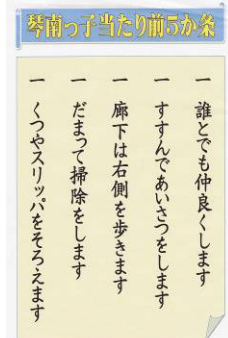 琴南っ子当たり前5か条
一 誰とでも仲良くします
一 すすんであいさつをします
一 廊下は右側を歩きます
一 だまって掃除をします
一 くつやスリッパをそろえます